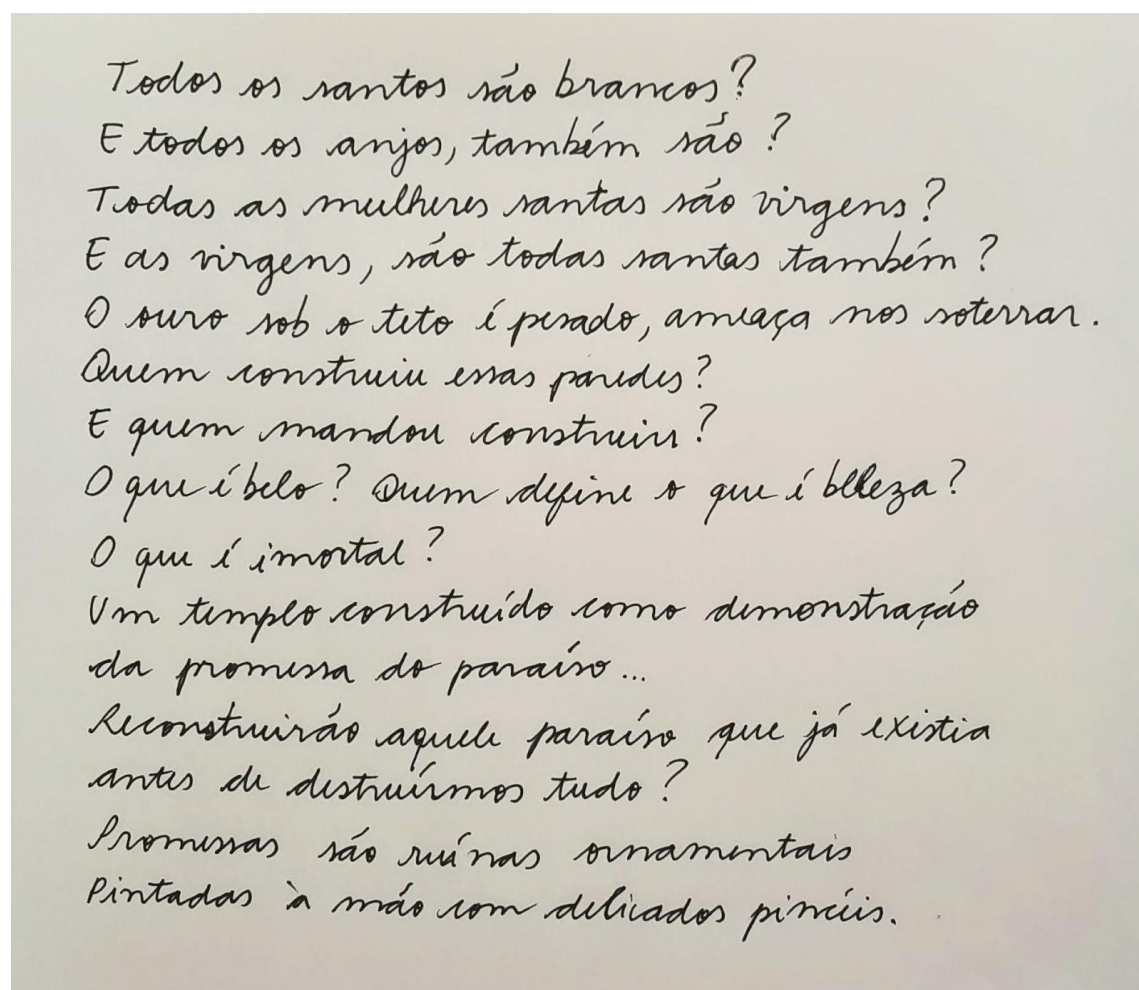 Todos os santos são brancos?
E todos os anjos, também são?
Todas as mulheres santas são virgens?
E as virgens, são todas santas também?
O ouro sob o teto é pesado, ameaça nos soterrar.
Quem construiu essas paredes?
E quem mandou construir?
O que é belo? Quem define o que é beleza?
O que é imortal?
Um templo construído como demonstração
da promessa do paraíso...
Reconstruirão aquele paraíso que já existia
antes de destruírmos tudo?
Promessas são ruínas ornamentais
Pintadas à mão com delicados pincéis.